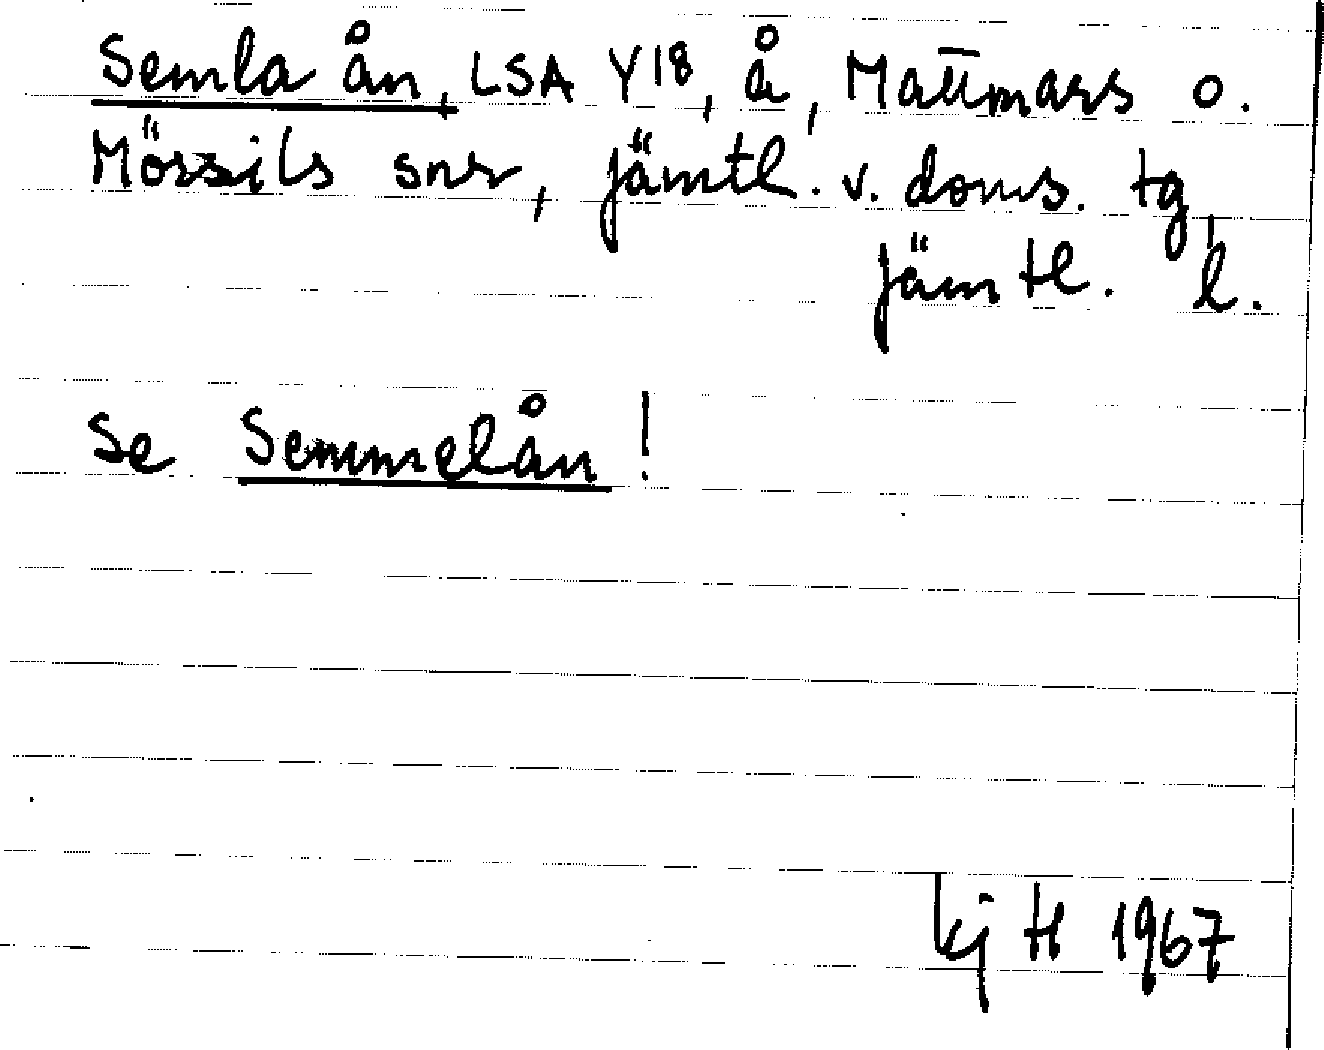 Semla ån, LSA Y18, å, Mattmars o.
Mörsils snr, jämtl. v. doms. tg,
jämtl. l.
Se Semmelån!
kj H 1967